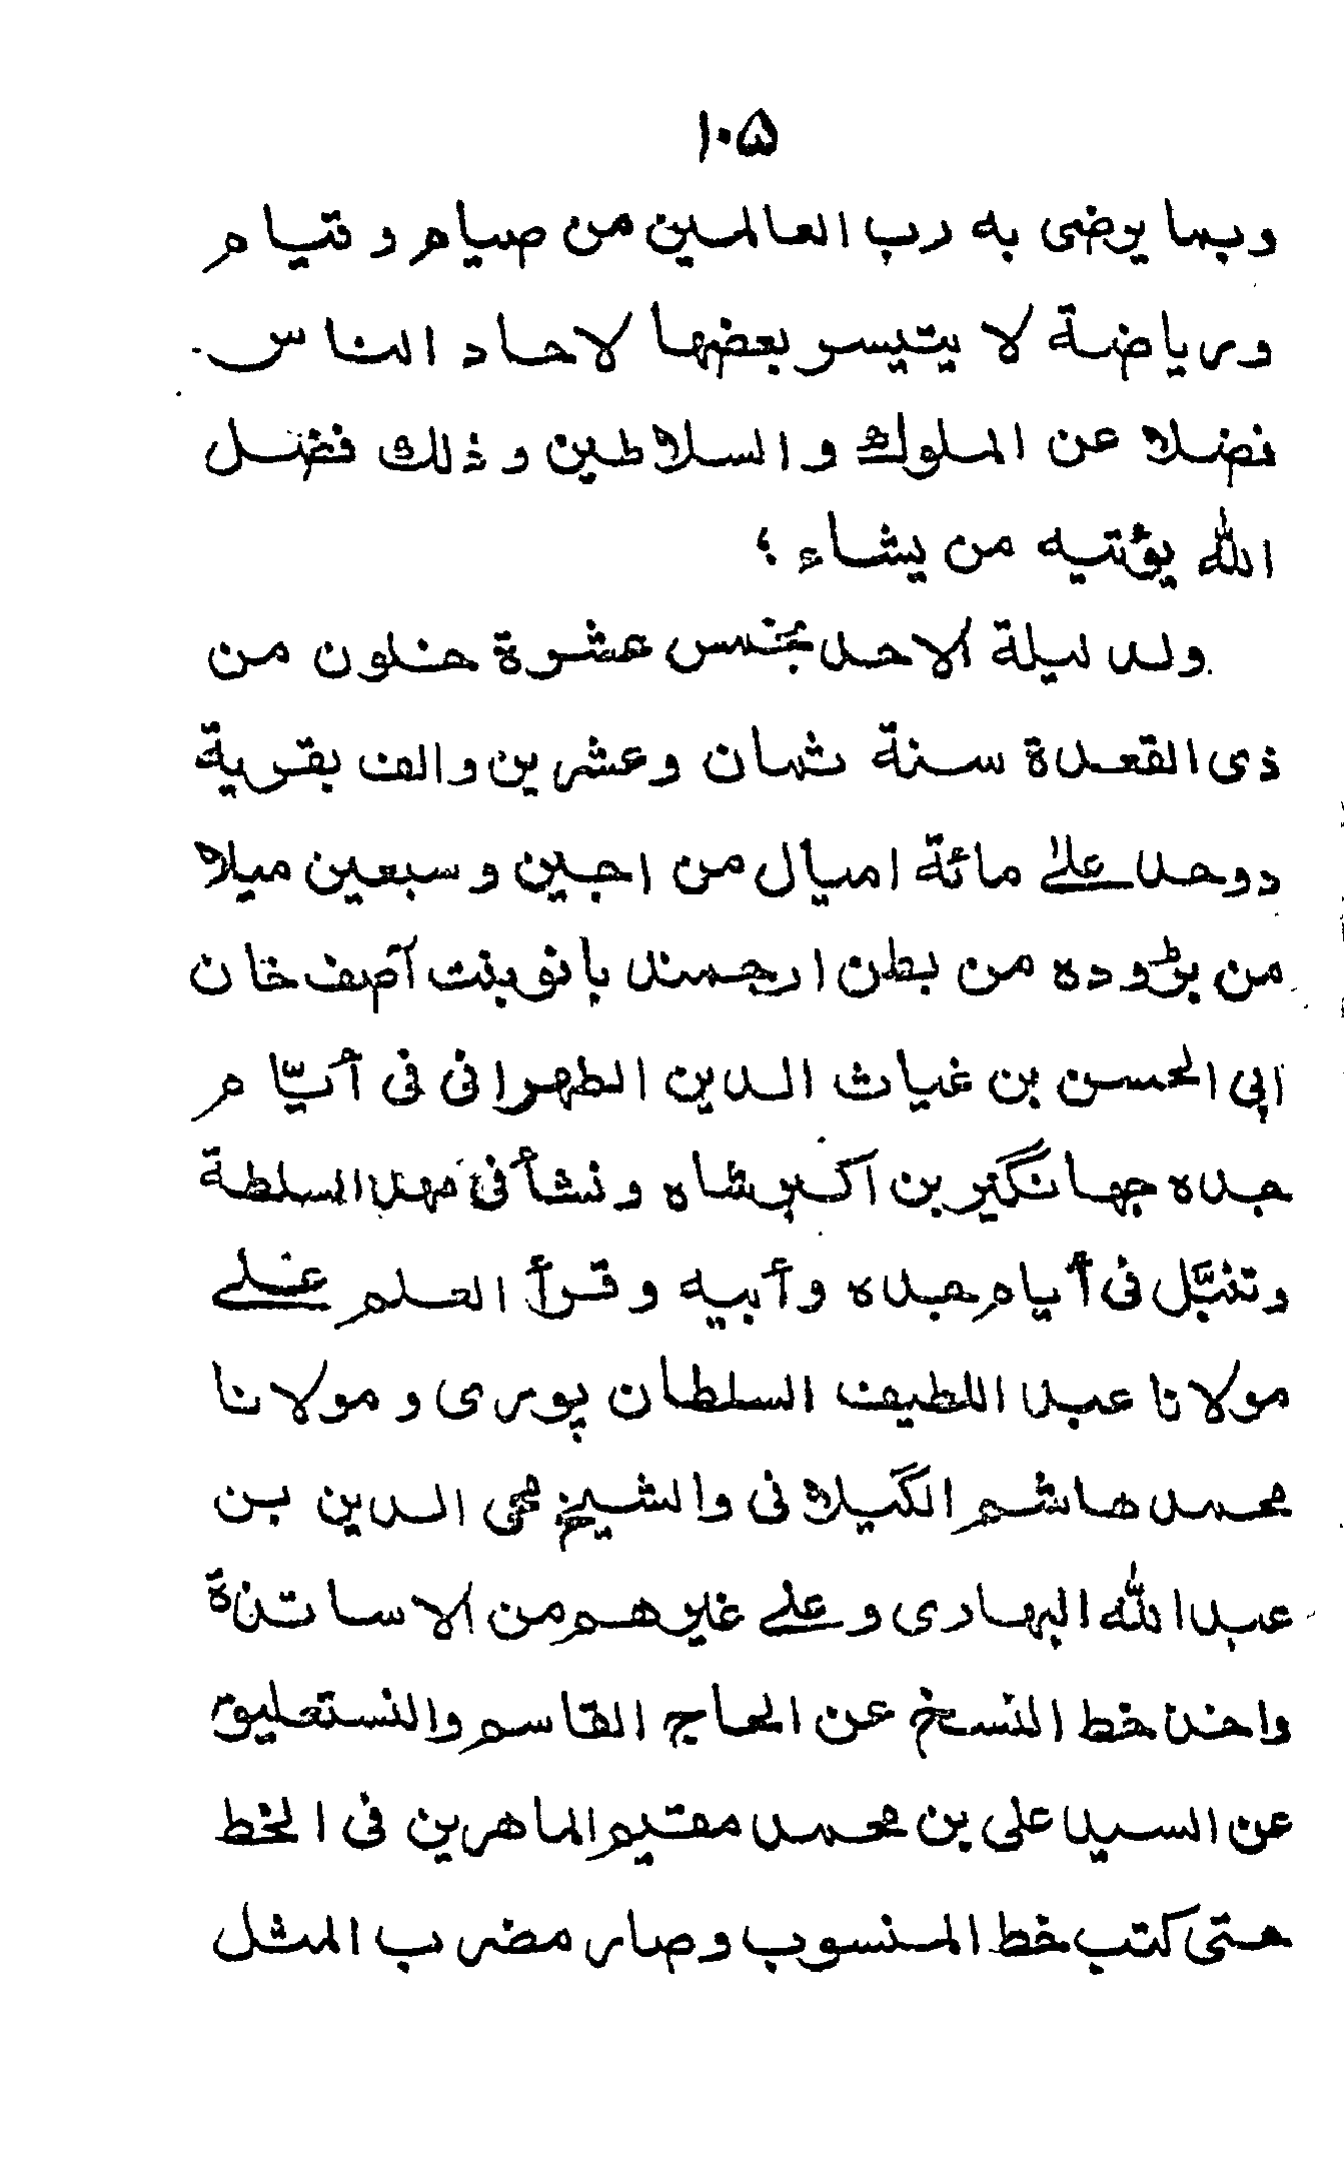 ۱۰۵
وبما يرضى به رب العالمين من صيام و قيام
ورياضة لا يتيسر بعضها لاحاد الناس
فضلا عن الملوك و السلاطين و ذلك فضل
الله يؤتيه من يشاء ؛
ولد ليلة الاحد بخمس عشرة خلون من
ذى القعدة سنة ثمان وعشرين والف بقرية
دوحد على مائة اميال من اجين و سبعين ميلا
من بڑوده من بطن ارجمند بانو بنت آصف خان
ابى الحسن بن غياث الدين الطهرانى فى أيّام
جده جهانگير بن اكبر شاه و نشأ فى مهد السلطة
وتنبّل فى أيام جده وأبيه و قرأ العلم على
مولانا عبد اللطيف السلطان پورى و مولانا
محمد هاشم الگيلانى والشيخ محى الدين بن
عبد الله البهارى و على غيرهم من الاساتذة
واخذ خط النسخ عن الحاج القاسم والنستعليق
عن السيد على بن محمد مقيم الماهرين فى الخط
حتى كتب خط المنسوب وصار مضرب المثل